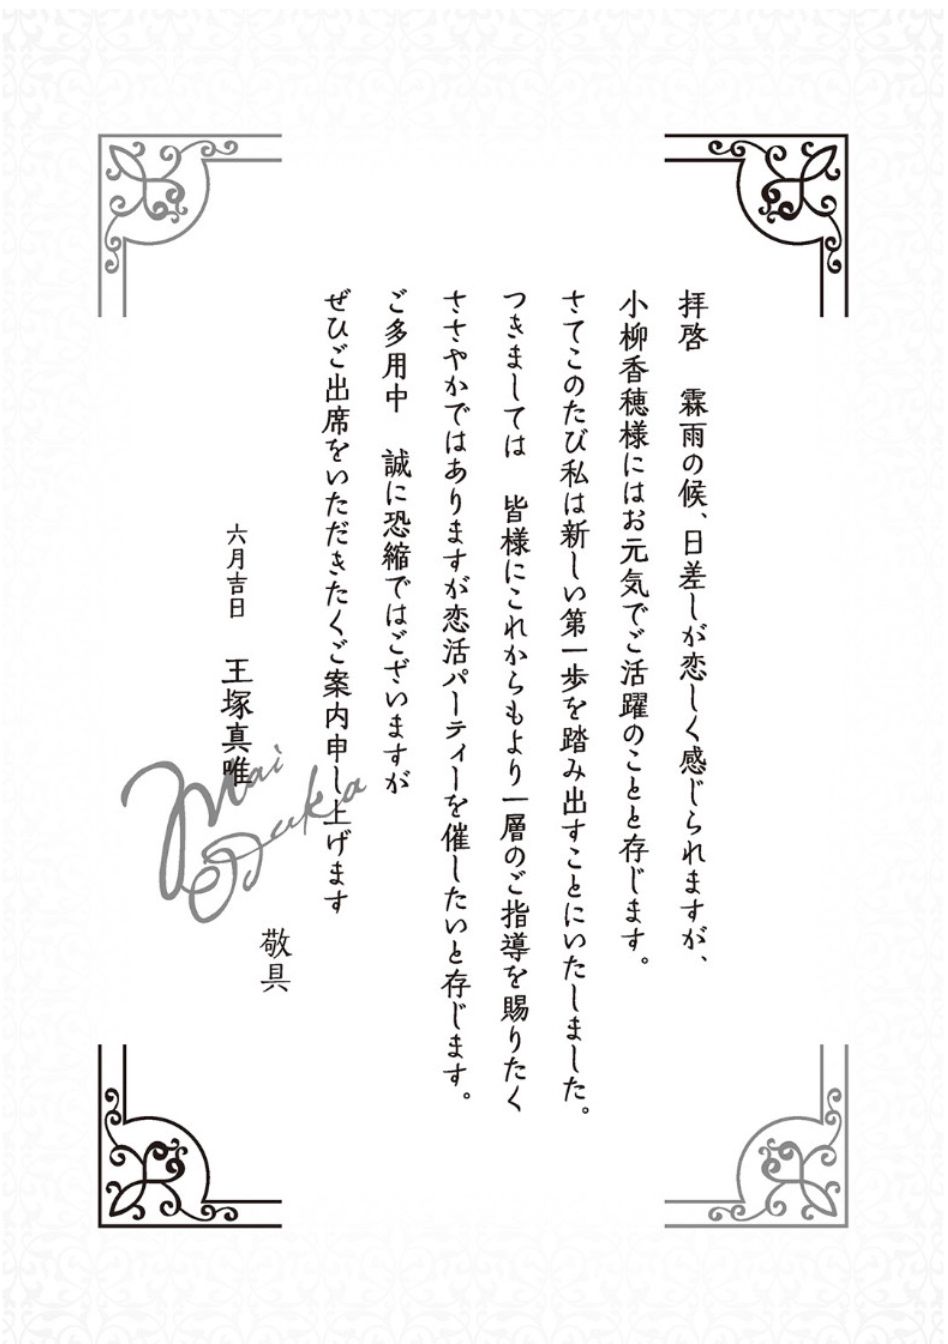 拝啓　霖雨の候、日差しが恋しく感じられますが、
小柳香穂様にはお元気でご活躍のことと存じます。
さてこのたび私は新しい第一歩を踏み出すことにいたしました。
つきましては　皆様にこれからもより一層のご指導を賜りたく
ささやかではありますが恋活パーティーを催したいと存じます。
ご多用中　誠に恐縮ではございますが
ぜひご出席をいただきたくご案内申し上げます
敬具
六月吉日　王塚真唯
Mai
Ozuka